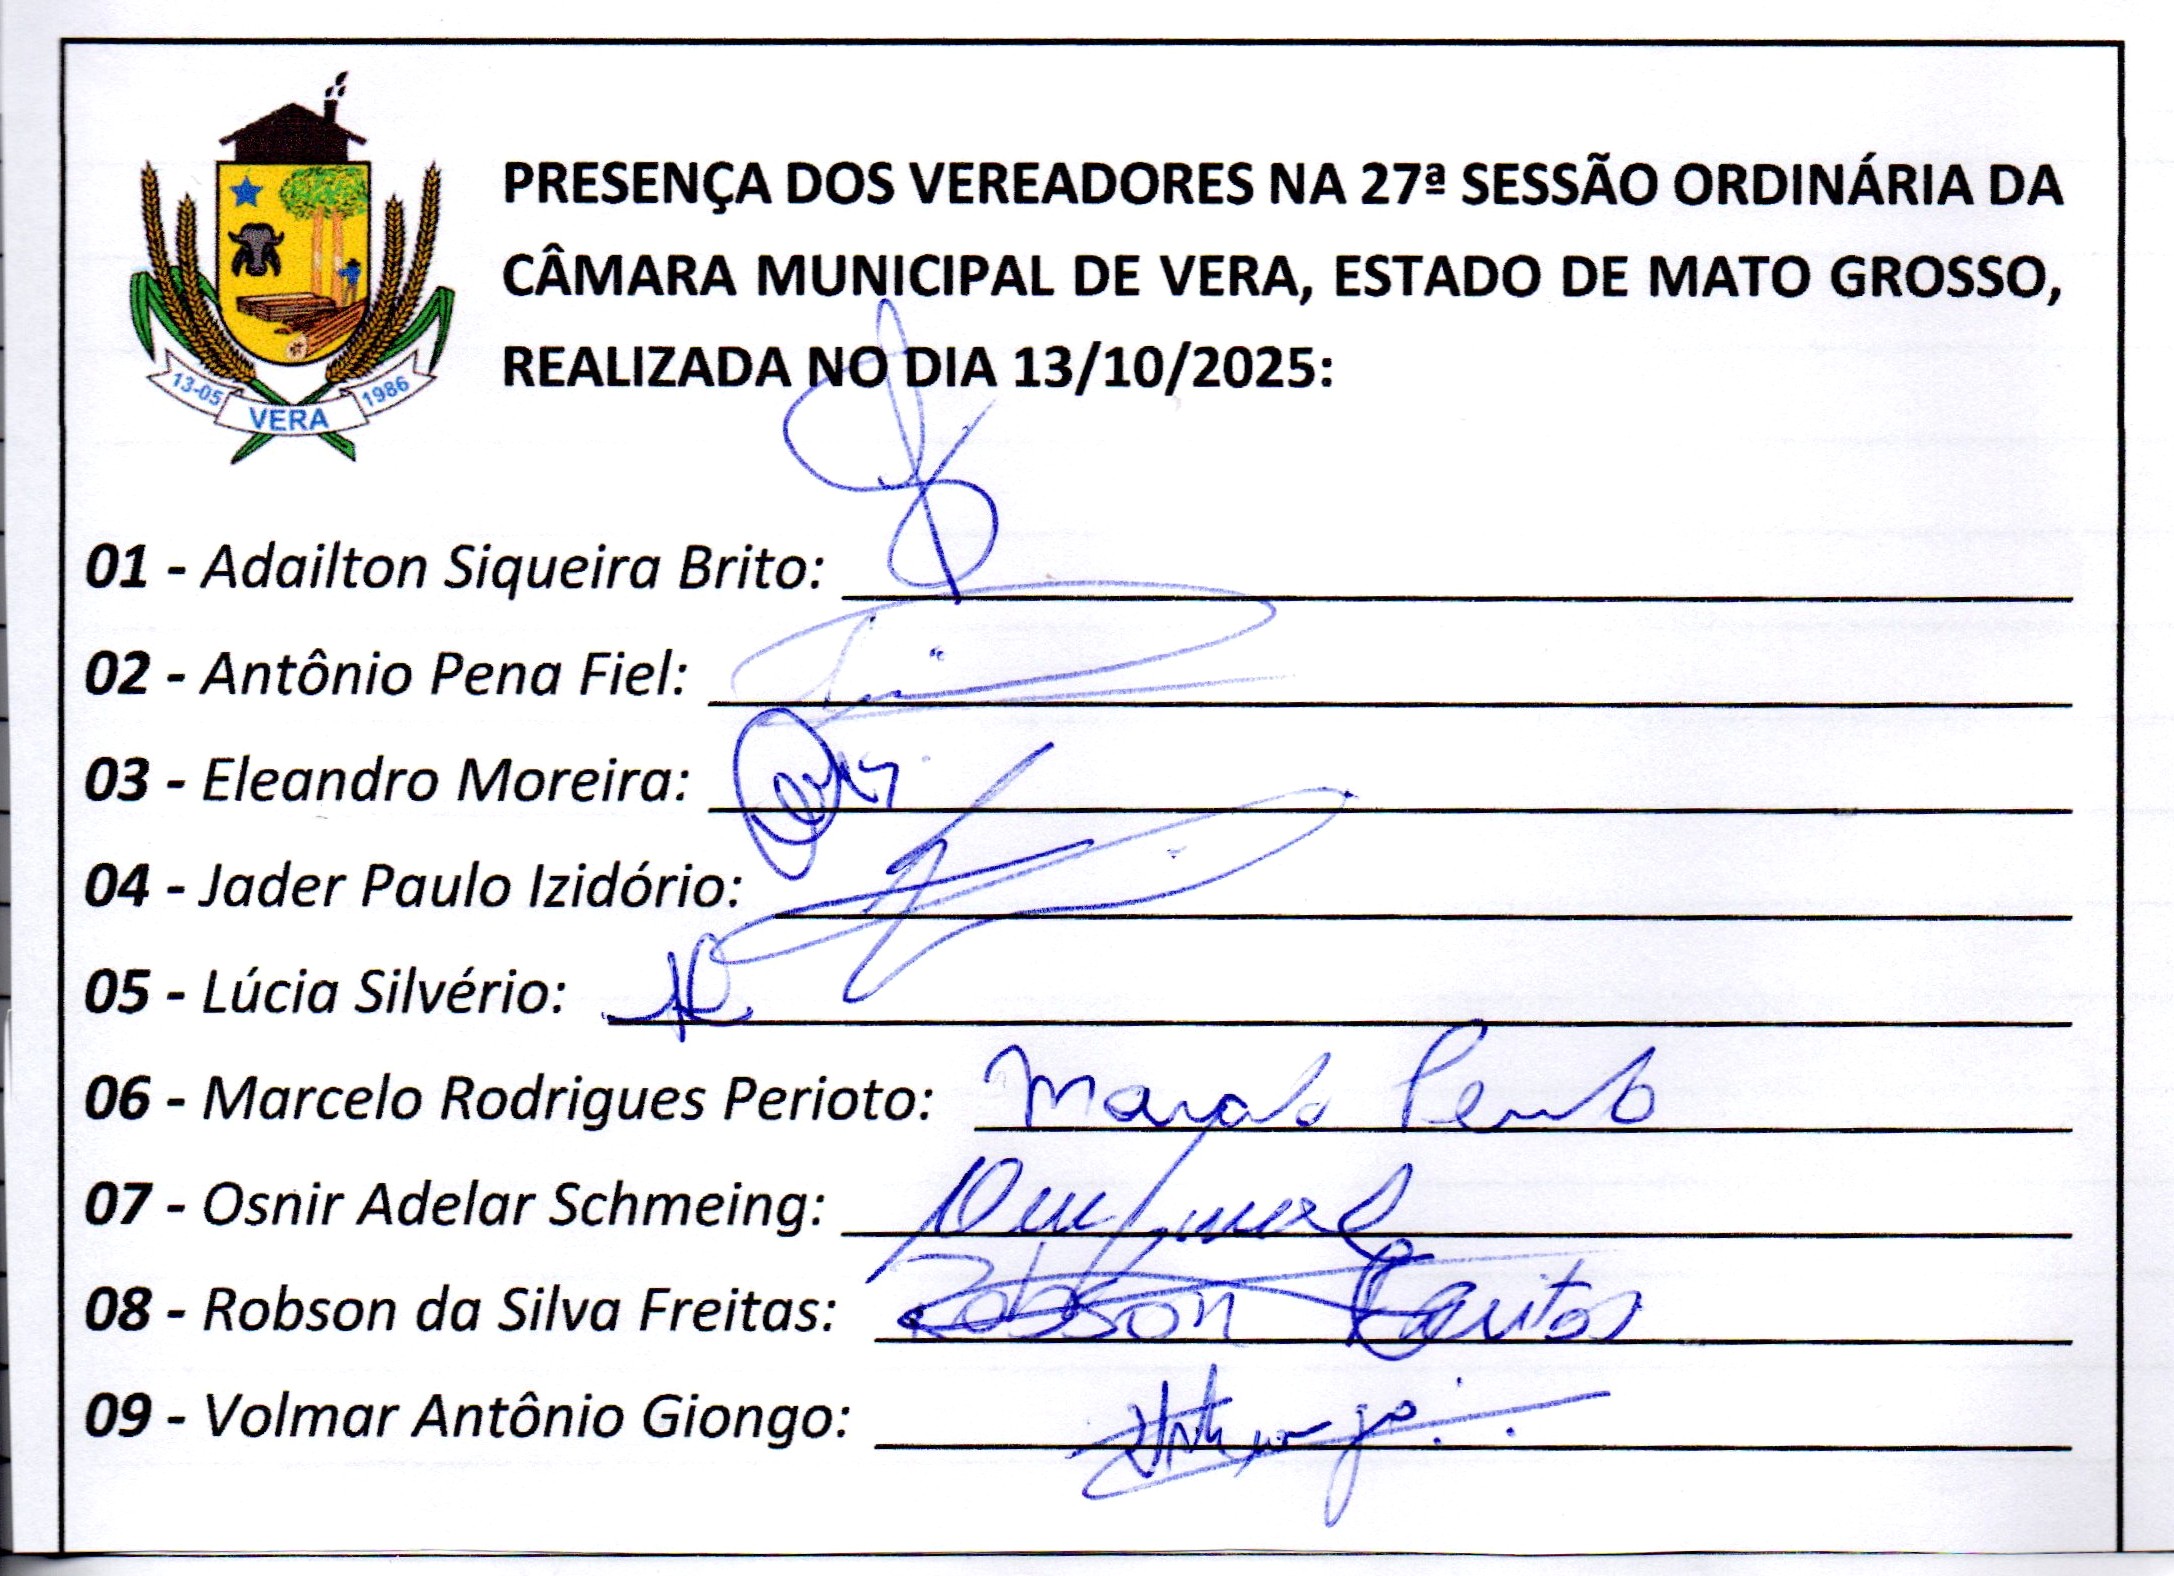 PRESENÇA DOS VEREADORES NA 27ª SESSÃO ORDINÁRIA DA
CÂMARA MUNICIPAL DE VERA, ESTADO DE MATO GROSSO,
REALIZADA NO DIA 13/10/2025:
13-05 VERA 1986
01 - Adailton Siqueira Brito:
02 - Antônio Pena Fiel:
03 - Eleandro Moreira:
04 - Jader Paulo Izidório:
05 - Lúcia Silvério:
06 - Marcelo Rodrigues Perioto:
07 - Osnir Adelar Schmeing:
08 - Robson da Silva Freitas: Robson
09 - Volmar Antônio Giongo: